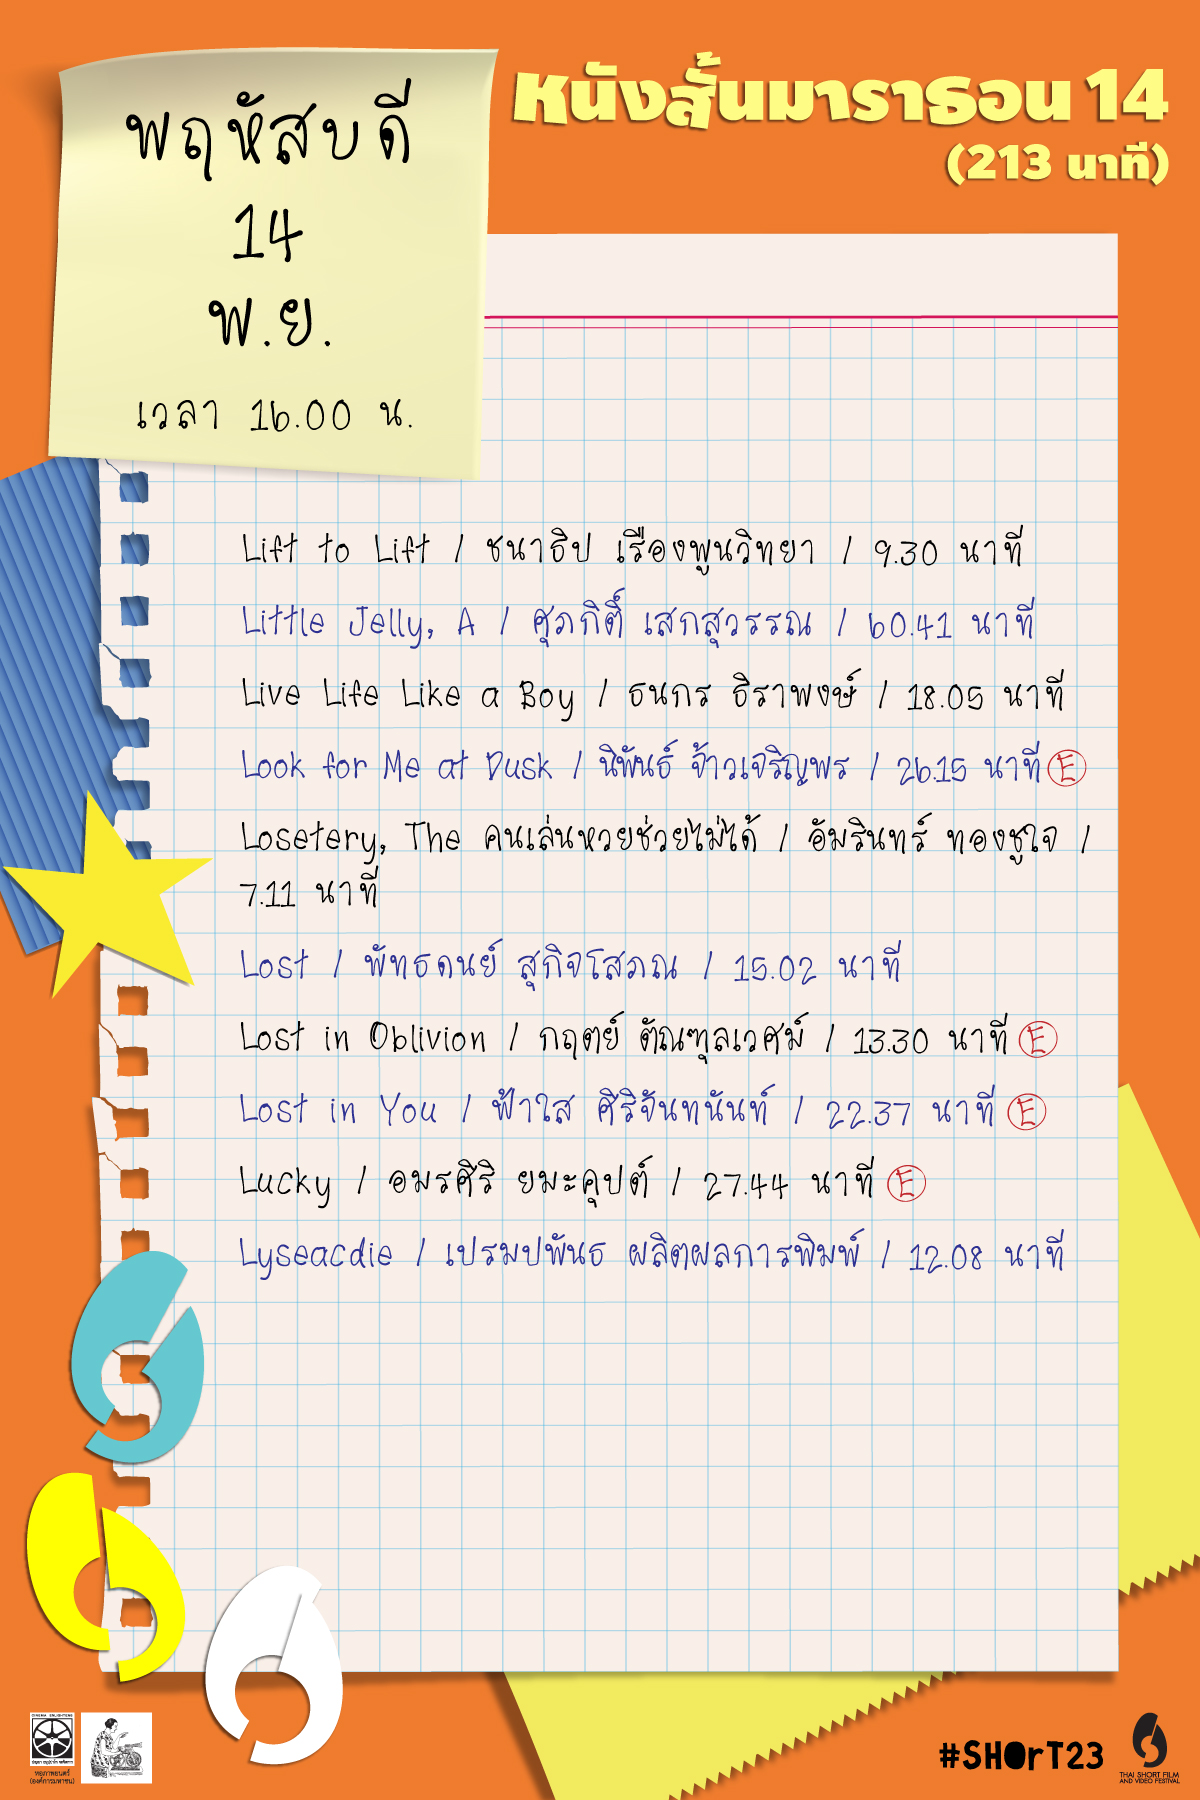 พฤหัสบดี
14
พ.ย.
เวลา 16.00 น.
หนังสั้นมาราธอน 14
(213 นาที)
Lift to Lift / ชนาธิป เรืองพูนวิทยา / 9.30 นาที
Little Jelly, A / ศุภกิตติ์ เสกสุวรรณ / 60.41 นาที
Live Life Like a Boy / ธนกร ธิราพงษ์ / 18.05 นาที
Look for Me at Dusk / นิพันธ์ จ้าวเจริญพร / 26.15 นาที E
Losetery, The คนเล่นหวยช่วยไม่ได้ / อัมรินทร์ ทองชูใจ /
7.11 นาที
Lost / พัทธดนย์ สุกิจโสภณ / 15.02 นาที
Lost in Oblivion / กฤตย์ ตัณฑุลเวศม์ / 13.30 นาที E
Lost in You / ฟ้าใส ศีริจันทนันท์ / 22.37 นาที E
Lucky / อมรศีริ ยมะคุปต์ / 27.44 นาที E
Lyseacdie / เปรมปพันธ ผลิตผลการพิมพ์ / 12.08 นาที
CINEMA ENLIGHTENS
หอภาพยนตร์
(องค์การมหาชน)
#SHOrT23
THAI SHORT FILM
AND VIDEO FESTIVAL